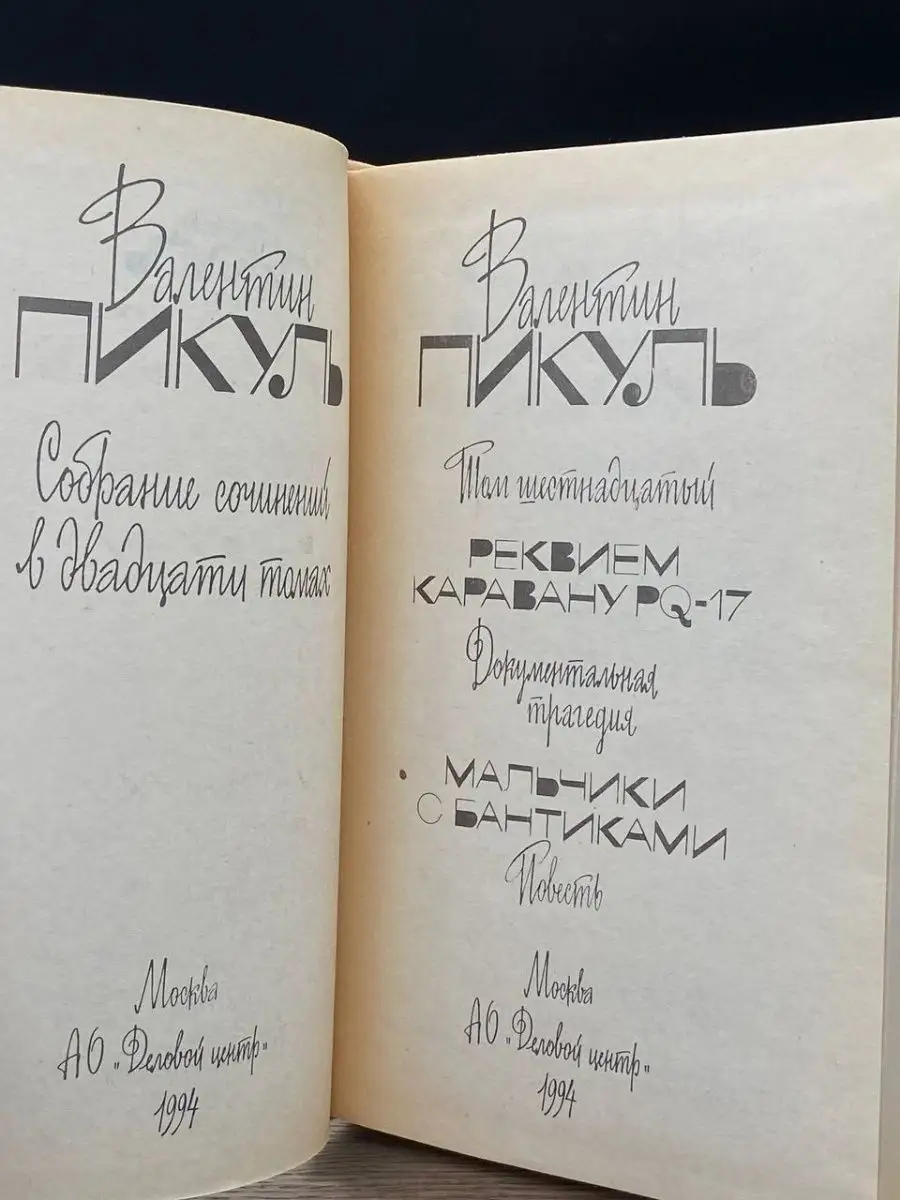 Валентин
ПИКУЛЬ
Собрание сочинений
в двадцати томах
Москва
АО „Деловой центр"
1994
Валентин
ПИКУЛЬ
Том шестнадцатый
РЕКВИЕМ
КАРАВАНУ PQ-17
Документальная
трагедия
МАЛЬЧИКИ
С БАНТИКАМИ
Повесть
Москва
АО „Деловой центр"
1994